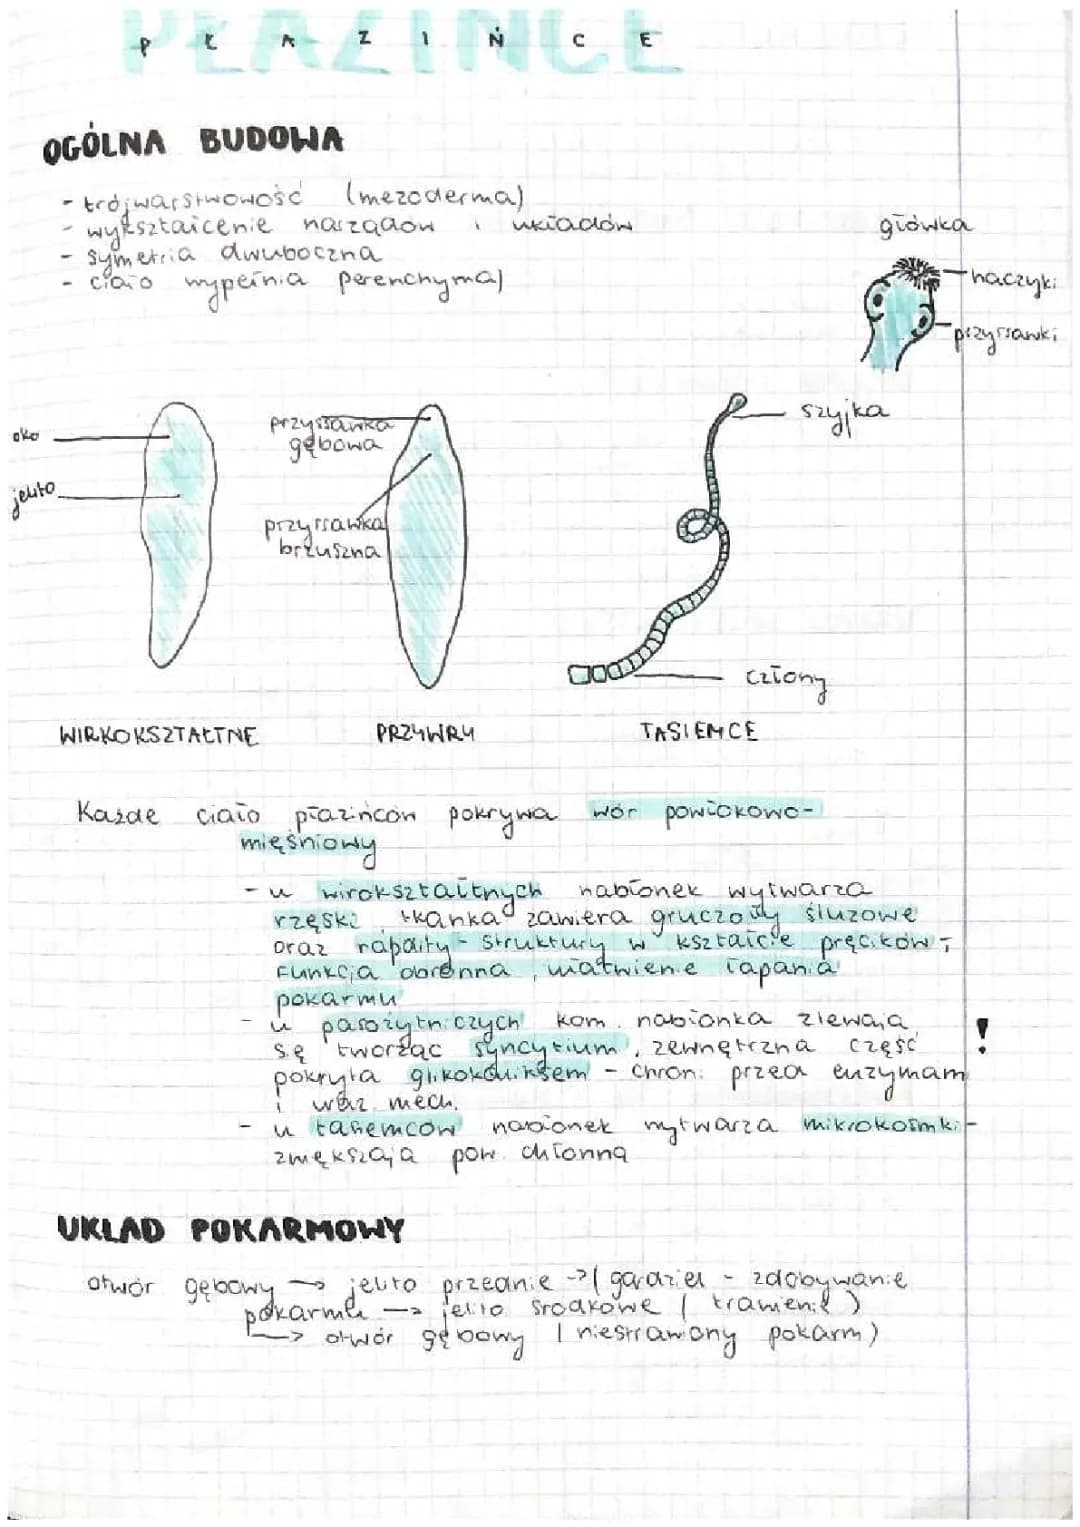 PŁAZIŃCE
OGÓLNA BUDOWA
- trójwarstwowość (mezoderma)
- wykształcenie narządów i układów
- symetria dwuboczna
- ciało wypełnia perenchyma)
główka
haczyki
przyssawki
szyjka
oko
jelito
przyssawka
gębowa
przyssawka
brzuszna
człony
WIRKOKSZTAŁTNE
PRZYWRY
TASIEMCE
Każde ciało płazińców pokrywa wór powłokowo-
mięśniowy
- u wirokształtnych nabłonek wytwarza
rzęski, tkanka zawiera gruczoły śluzowe
oraz rabdity - struktury w kształcie pręcików;
funkcja obronna, ułatwienie łapania
pokarmu
- u pasożytniczych kom. nabłonka zlewają
się tworząc syncytium, zewnętrzna część !
pokryta glikokaliksem - chroni przed enzymami
i uraz. mech.
- u tasiemców nabłonek wytwarza mikrokosmki -
zwiększają pow. chłonną
UKŁAD POKARMOWY
otwór gębowy → jelito przednie → ( gardziel - zdobywanie
pokarmu → jelito środkowe ( trawienie )
→ otwór gębowy ( niestrawiony pokarm )